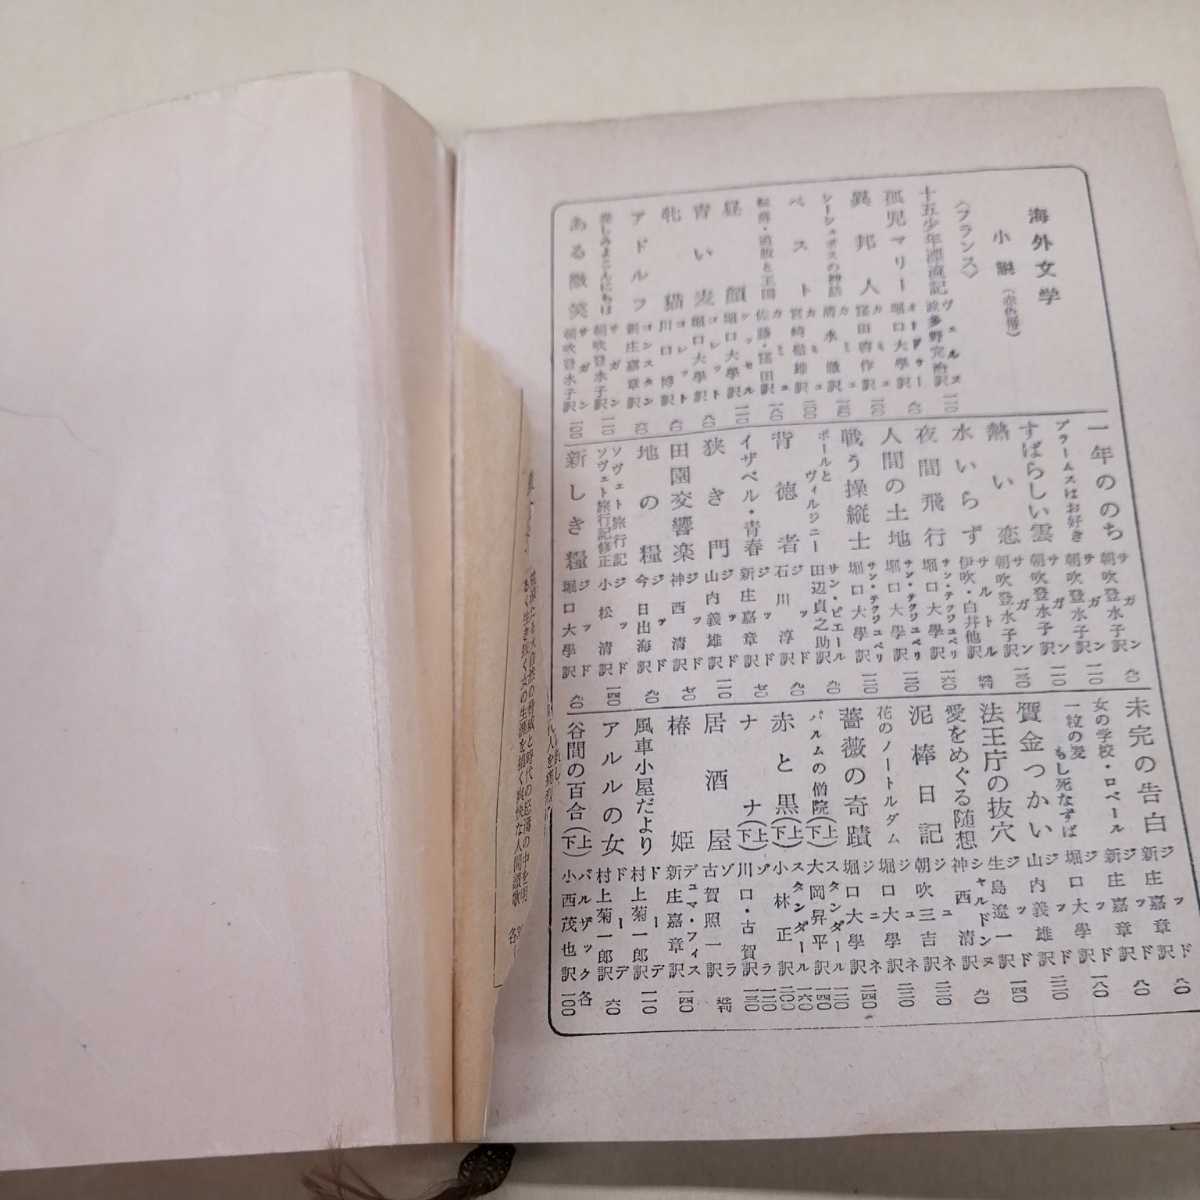 海外文学
小説（赤色帯）
〈フランス〉
十五少年漂流記 ヴェルヌ 波多野完治訳 一二〇
孤児マリー オードゥー 堀口大學訳 八〇
異邦人 カミュ 窪田啓作訳 一〇〇
シーシュポスの神話 カミュ 清水徹訳 一四〇
ペスト カミュ 宮崎嶺雄訳 二〇〇
転落・追放と王国 カミュ 佐藤・窪田訳 一八〇
昼顔 ケッセル 堀口大學訳 一二〇
青い麦 コレット 堀口大學訳 八〇
牝猫 コレット 川口博訳 八〇
アドルフ コンスタン 新庄嘉章訳 六〇
悲しみよこんにちは サガン 朝吹登水子訳 一一〇
ある微笑 サガン 朝吹登水子訳 一〇〇
一年ののち サガン 朝吹登水子訳 九〇
ブラームスはお好き サガン 朝吹登水子訳 一一〇
すばらしい雲 サガン 朝吹登水子訳 一一〇
熱い恋 サガン 朝吹登水子訳 一三〇
水いらず サルトル 伊吹・白井他訳
夜間飛行 サン・テグジュペリ 堀口大學訳 一六〇
人間の土地 サン・テグジュペリ 堀口大學訳 一三〇
戦う操縦士 サン・テグジュペリ 堀口大學訳 一三〇
ポールとヴィルジニー サン・ピエール 田辺貞之助訳 九〇
背徳者 ジッド 石川淳訳 九〇
イザベル・青春 ジッド 新庄嘉章訳 七〇
狭き門 ジッド 山内義雄訳 一二〇
田園交響楽 ジッド 神西清訳 七〇
地の糧 ジッド 今日出海訳 九〇
ソヴェト旅行記 ソヴェト旅行記修正 ジッド 小松清訳 一四〇
新しき糧 ジッド 堀口大學訳 六〇
未完の告白 ジッド 新庄嘉章訳 八〇
女の学校・ロベール ジッド 新庄嘉章訳 八〇
一粒の麦もし死なずば ジッド 堀口大學訳 一八〇
贋金つかい ジッド 山内義雄訳 二二〇
法王庁の抜穴 ジッド 生島遼一訳 一四〇
愛をめぐる随想 シャルドンヌ 神西清訳 九〇
泥棒日記 ジュネ 朝吹三吉訳 二二〇
花のノートルダム ジュネ 堀口大學訳 二二〇
薔薇の奇蹟 ジュネ 堀口大學訳 二四〇
パルムの僧院（上）（下） スタンダール 大岡昇平訳 一二〇 一四〇
赤と黒（上）（下） スタンダール 小林正訳 一六〇 二〇〇
ナナ（上）（下） ゾラ 川口・古賀訳 一二〇 一三〇
居酒屋 ゾラ 古賀照一訳
椿姫 デュマ・フィス 新庄嘉章訳 一四〇
風車小屋だより ドーデ 村上菊一郎訳 一一〇
アルルの女 ドーデ 村上菊一郎訳 六〇
谷間の百合（上）（下） バルザック 小西茂也訳 各一〇〇